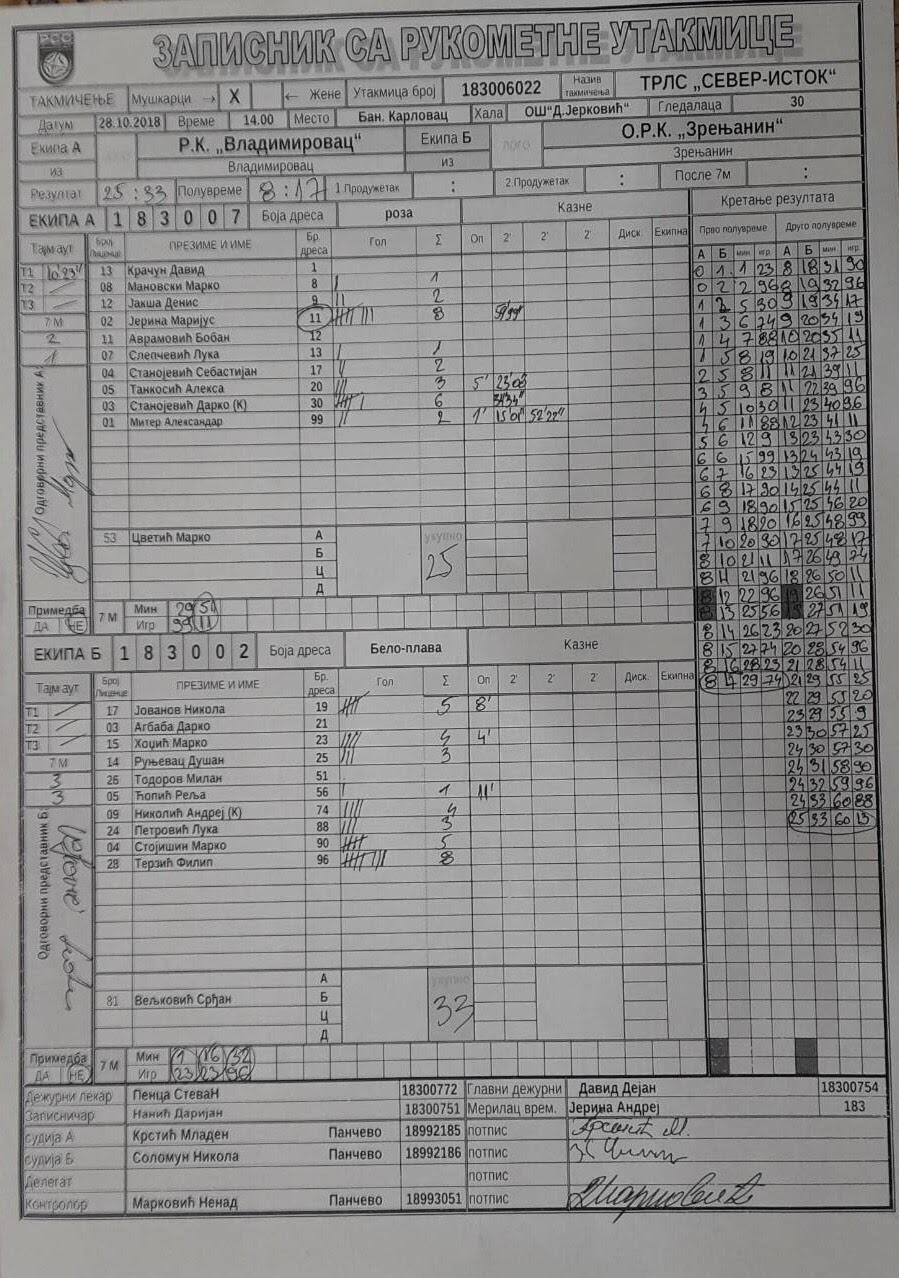 РСС
ЗАПИСНИК СА РУКОМЕТНЕ УТАКМИЦЕ
ТАКМИЧЕЊЕ Мушкарци → X ← Жене Утакмица број 183006022 Назив такмичења ТРЛС „СЕВЕР-ИСТОК“
Датум 28.10.2018 Време 14.00 Место Бан. Карловац Хала ОШ“Д.Јерковић“ Гледалаца 30
Екипа А Р.К. „Владимировац“ Екипа Б лого О.Р.К. „Зрењанин“
из Владимировац из Зрењанин
Резултат 25 : 33 Полувреме 8 : 17 1 Продужетак : 2.Продужетак : После 7м :
ЕКИПА А 1 8 3 0 0 7 Боја дреса роза Казне Кретање резултата
Прво полувреме Друго полувреме
Тајм аут Број Лиценце ПРЕЗИМЕ И ИМЕ Бр. дреса Гол Σ Оп 2' 2' 2' Диск. Екипна
А Б мин игр А Б мин. игр.
Т1 10.23"
Т2
Т3
7 М
2
1
Одговорни представник А:
13 Крачун Давид 1
08 Мановски Марко 8 1
12 Јакша Денис 9 2
02 Јерина Маријус 11 8
11 Аврамовић Бобан 12
07 Слепчевић Лука 13 1
04 Станојевић Себастијан 17 2
05 Танкосић Алекса 20 3 5' 23'08
03 Станојевић Дарко (К) 30 6 31'34"
01 Митер Александар 99 2 1' 15'01" 52'22"
53 Цветић Марко А укупно
Б 25
Ц
Д
Примедба ДА НЕ 7 М Мин 29 51
Игр 99 11
0 1 1 23 8 18 31 90
0 2 2 96 8 19 32 96
1 2 5 30 9 19 34 17
1 3 6 74 9 20 34 19
1 4 7 88 10 20 35 11
1 5 8 19 10 21 37 25
2 5 8 11 11 21 39 11
3 5 9 8 11 22 39 96
4 5 10 30 11 23 40 96
4 6 11 88 12 23 41 11
5 6 12 9 13 23 43 30
6 6 15 99 13 24 43 19
6 7 16 23 13 25 44 19
6 8 17 90 14 25 44 11
6 9 18 90 15 25 46 20
7 9 18 20 16 25 48 99
7 10 20 90 17 25 48 17
8 10 21 11 17 26 49 74
8 11 21 96 18 26 50 11
8 12 22 96 19 26 51 11
8 13 25 56 19 27 51 19
8 14 26 23 20 27 52 30
8 15 27 74 20 28 54 96
8 16 28 23 21 28 54 11
8 17 29 74 21 29 55 25
22 29 55 20
23 29 55 9
23 30 57 25
24 30 57 30
24 31 58 90
24 32 59 96
24 33 60 88
25 33 60 13
ЕКИПА Б 1 8 3 0 0 2 Боја дреса Бело-плава Казне
Тајм аут Број Лиценце ПРЕЗИМЕ И ИМЕ Бр. дреса Гол Σ Оп 2' 2' 2' Диск. Екипна
Т1
Т2
Т3
7 М
3
3
Одговорни представник Б:
17 Јованов Никола 19 5 8'
03 Агбаба Дарко 21
15 Хоџић Марко 23 4 4'
14 Руњевац Душан 25 3
26 Тодоров Милан 51
05 Ћопић Реља 56 1 11'
09 Николић Андреј (К) 74 4
24 Петровић Лука 88 3
04 Стојишин Марко 90 5
28 Терзић Филип 96 8
81 Вељковић Срђан А укупно
Б 33
Ц
Д
Примедба ДА НЕ 7 М Мин 1 16 32
Игр 23 23 96
Дежурни лекар Пенца СтеваН 18300772 Главни дежурни Давид Дејан 18300754
Записничар Нанић Даријан 18300751 Мерилац врем. Јерина Андреј 183
судија А Крстић Младен Панчево 18992185 потпис
судија Б Соломун Никола Панчево 18992186 потпис
Делегат потпис
Контролор Марковић Ненад Панчево 18993051 потпис